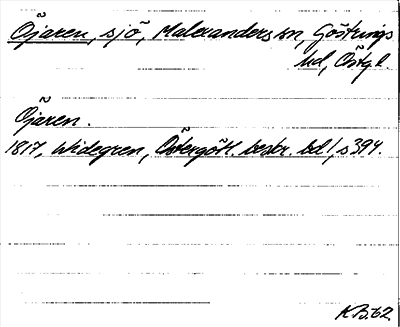 Öjaren, sjö, Malexanders sn, Göstrings
hd, Östgl.
Öjaren.
1817, Widegren, Östergötl. beskr. bd 1, s 394.
K B. 62